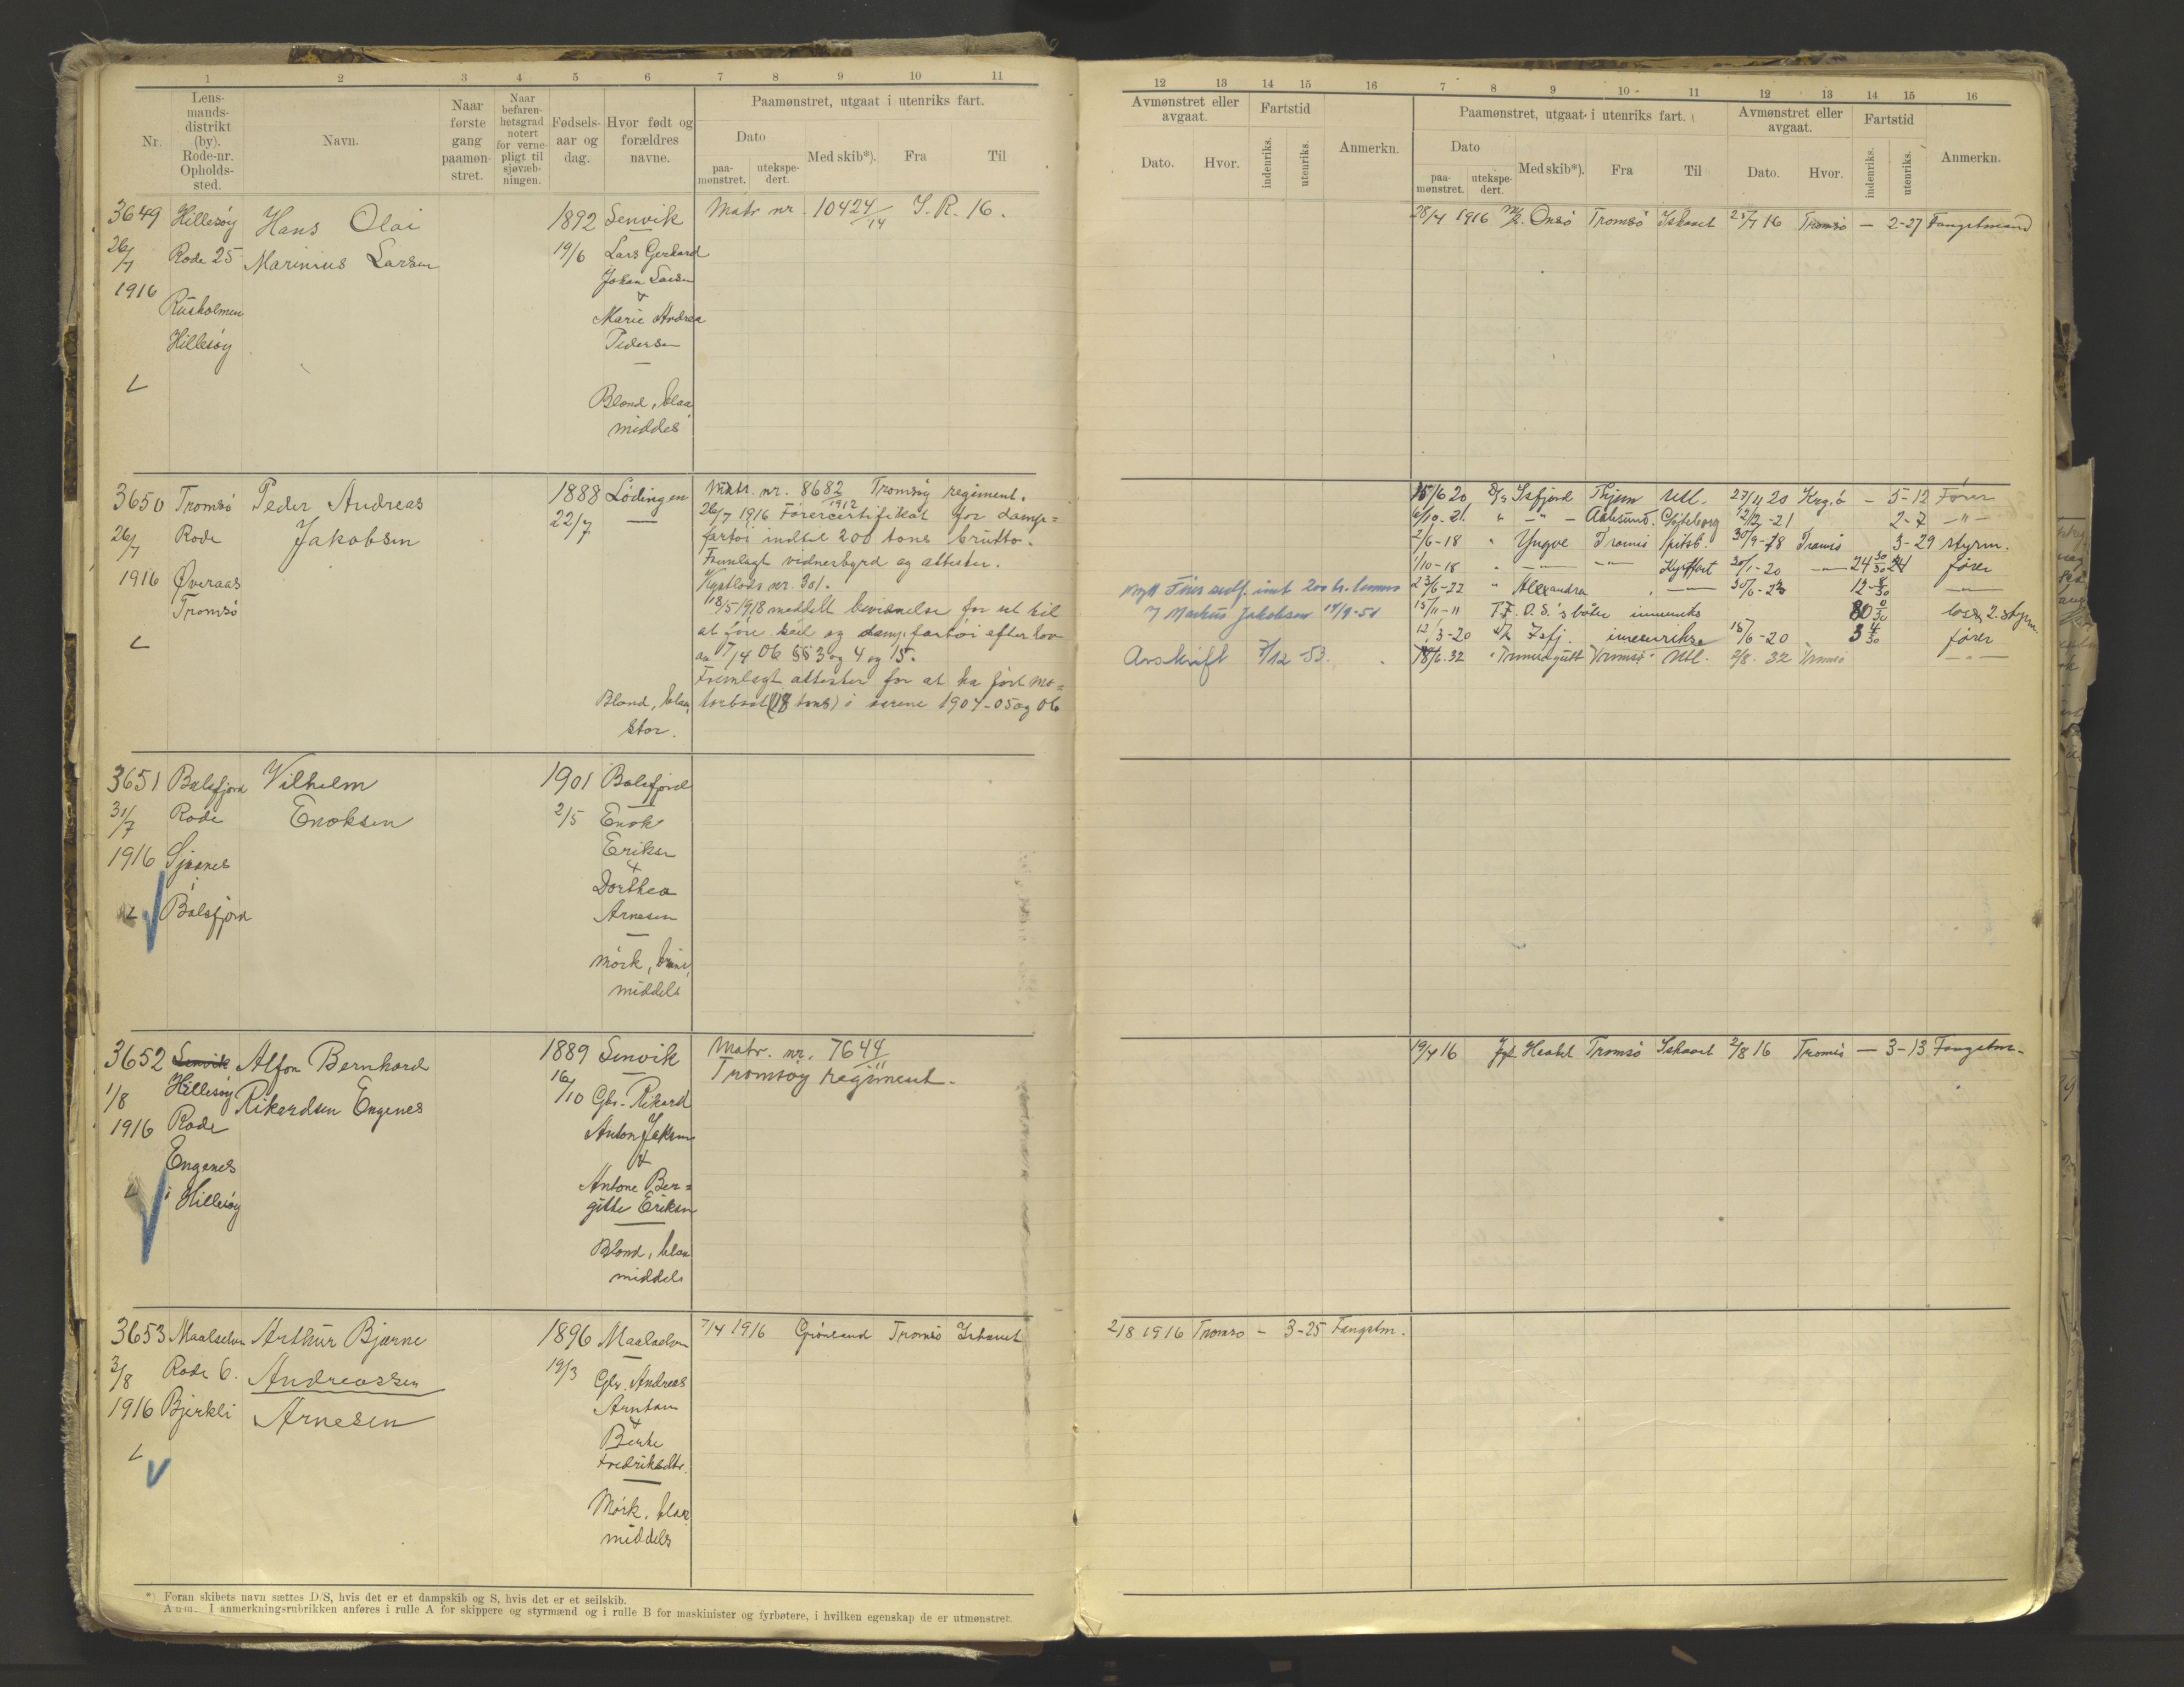 1 2 3 4 5 6 7 8 9 10 11
Nr.
Lens-
mands-
distrikt
(by).
Rode-nr.
Opholds-
sted.
Navn.
Naar
første
gang
paamøn-
stret.
Naar
befaren-
hetsgrad
notert
for verne-
pligt til
sjøvæb-
ningen.
Fødsels-
aar og
dag.
Hvor født og
forældres
navne.
Paamønstret, utgaat i utenriks fart.
Dato
paa-
mønstret.
utekspe-
dert.
Med skib*).
Fra
Til
3649 Hillesøy Hans Olai 1892 Lenvik Matr nr. 10424/14 I. R. 16.
26/7 Rode 25 Marinius Larsen 19/6 Lars Gerhard
1916 Johan Larsen
Rusholmen &
Hillesøy Marie Andrea
Pedersen
Blond, blaa
middes
3650 Tromsö Peder Andreas 1888 Lödingen Matr. nr. 8682/1912 Tromsøy regiment.
26/7 Rode Jakobsen 22/7 26/7 1916 Förercertifikat for damp=
1916 Øveraas fartöi indtil 200 tons brutto.
Tromsö Fremlagt vidnesbyrd og attester.
nr. 301.
18/5 1918 meddelt bevisnelse for ret til
at före seil og dampfartöi efter lov
av 7/4 06 §§ 3 og 4 og 15.
Fremlagt attester for at ha fört mo=
Blond, blaa, torbaat (18 tons) i aarene 1904-05 og 06
stor.
3651 Balsfjord Vilhelm 1901 Balsfjord
31/7 Rode Enoksen 2/5 Enok
1916 Sjøsnes Eriksen
i &
Balsfjord Dorthea
Arnesen
Mörk, brune,
middels
3652 Lenvik Alfon Bernhard 1889 Lenvik Matr. nr. 7644/11
1/8 Hillesöy Rikardsen Engenes 16/10 Gbr. Rikard Tromsøy regiment.
1916 Rode Anton Jaksen
Engenes &
i Hillesøy Antone Ber=
gitte Eriksen
Blond, blaa
middels
3653 Maalselven Arthur Bjarne 1896 Maalselven 7/4 1916 Grönland Tromsö Ishavet
3/8 Rode 6. Andreassen 19/3 Gbr. Andreas
1916 Bjerkli Arnesen Arntsen
&
Berthe
Fredriksdtr.
Mörk, blaa
middels
*) Foran skibets navn sættes D/S, hvis det er et dampskib og S, hvis det er et seilskib.
Anm. I anmerkningsrubrikken anføres i rulle A for skippere og styrmænd og i rulle B for maskinister og fyrbøtere, i hvilken egenskap de er utmønstret.
12 13 14 15 16 7 8 9 10 11 12 13 14 15 16
Avmønstret eller
avgaat.
Dato.
Hvor.
Fartstid
indenriks.
utenriks.
Anmerkn.
Paamønstret, utgaat i utenriks fart.
Dato
paa-
mønstret.
utekspe-
dert.
Med skib*).
Fra
Til
Avmønstret eller
avgaat.
Dato.
Hvor.
Fartstid
indenriks.
utenriks.
Anmerkn.
28/4 1916 M/K. Onsö Tromsö Ishavet 25/7 16 Tromsö — 2-27 Fangstmand
15/6 20 D/S Isfjord Thjem Utl. 27/11 20 Krg.ö — 5-12 Förer
6/10-21 " — " — Aalesund. Göteborg 12/12-21 2-7 — " —
2/6-18 " Yngve Tromsö Spitsb. 30/9-18 Tromsö 3-29 styrm.
1/10-18 " — " — — " — Kystfart 30/1-20 — " — 24 förer
23/6-22 " Alexandra — " — 30/6-23 12-8/30 — " —
15/11-11 T.F.D.S.'s båter innenriks 80 0/30 2. styrm.
12/3-20 D/S Isfj. innenriks 15/6-20 3 4/30 förer
18/6.32 " Tromsögutt Tromsö Utl. 2/8. 32 Tromsö — " —
Nytt 200 br. tonns
Markus Jakobsen 14/9-51
Avskrift 7/12-53.
19/4 16 Haabet Tromsö Ishavet 2/8 16 Tromsö — 3-13 Fangstm.
2/8 1916 Tromsö — 3-25 Fangstm.